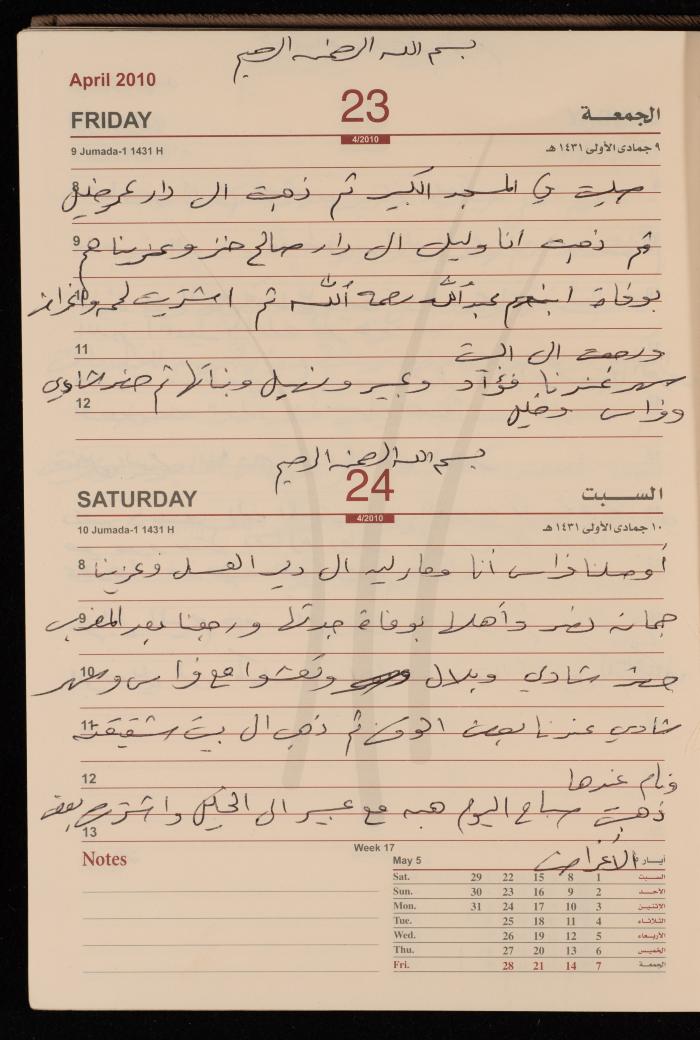 بسم الله الرحمن الرحيم
April 2010
FRIDAY 23 الجمعـــة
4/2010
9 Jumada-1 1431 H ٩ جمادى الأولى ١٤٣١ هـ
8 صليت في المسجد الكبير ثم ذهبت ال دار
9 ثم ذهبت انا وليل ال دار صالح وعزيناهم
10 بوفاة ابنهم عبدالله رحمه الله ثم اشتريت لحمه
11 ورجعت ال البيت
سهر عندنا فؤآد وعبير ونهيل وبناتها ثم حضر شادي
12 وفراس وخليل
بسم الله الرحمن الرحيم
SATURDAY 24 الســـبت
4/2010
10 Jumada-1 1431 H ١٠ جمادى الأولى ١٤٣١ هـ
8 أوصلنا فراس أنا وماريه ال دير العسل وعزينا
9 جمانه وأهلها بوفاة جدتها ورجعنا بعد المغرب
10 حضر شادي وبلال وتعشوا مع فراس وسهر
11 شادي عندنا بعض الوقت ثم ذهب ال بيت شقيقته
12 ونام عندها
ذهبت صباح اليوم هبه مع عبير الى الخليل واشترت بعض
13 الأغراض
Notes
Week 17
May 5 أيـــار ٥
Sat. 29 22 15 8 1 السبت
Sun. 30 23 16 9 2 الأحد
Mon. 31 24 17 10 3 الإثنين
Tue. 25 18 11 4 الثلاثاء
Wed. 26 19 12 5 الأربعاء
Thu. 27 20 13 6 الخميس
Fri. 28 21 14 7 الجمعة